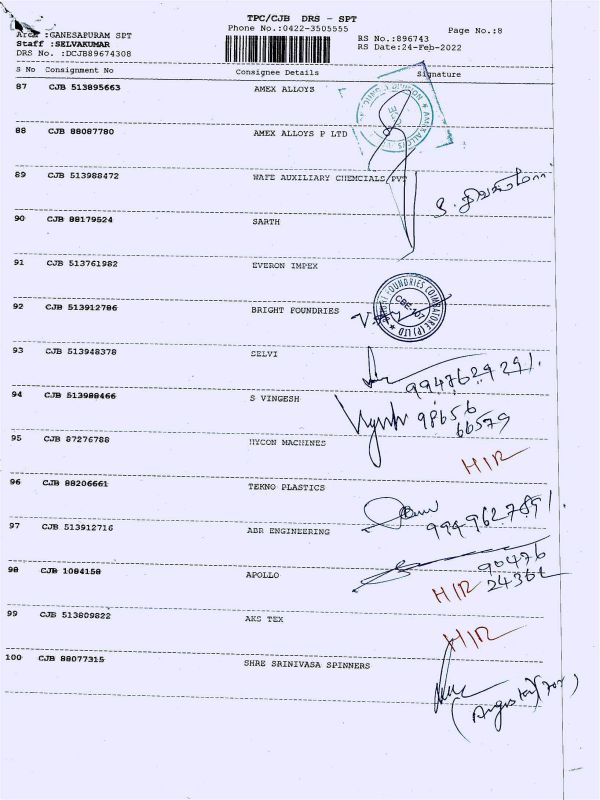 TPC/CJB DRS - SPT
Phone No.:0422-3505555
Page No.:8
Area :GANESAPURAM SPT
Staff :SELVAKUMAR
RS No.:896743
DRS No. :DCJB89674308
RS Date:24-Feb-2022
S No Consignment No Consignee Details Signature
87 CJB 513895663 AMEX ALLOYS
88 CJB 88087780 AMEX ALLOYS P LTD
89 CJB 513988472 WAFE AUXILIARY CHEMCIALS PVT
90 CJB 88179524 SARTH
91 CJB 513761982 EVERON IMPEX
92 CJB 513912786 BRIGHT FOUNDRIES
93 CJB 513948378 SELVI
9947629291.
94 CJB 513988466 S VINGESH
98656
66579
95 CJB 87276788 HYCON MACHINES
HIR
96 CJB 88206661 TEKNO PLASTICS
97 CJB 513912716 ABR ENGINEERING
90476
98 CJB 1084158 APOLLO
HIR
99 CJB 513809822 AKS TEX
HIR
100 CJB 88077315 SHRE SRINIVASA SPINNERS